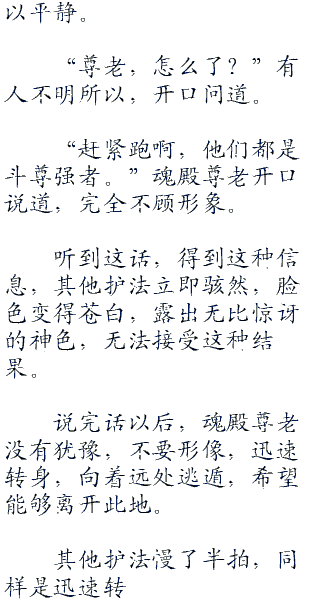 以平静。
“尊老，怎么了？”有
人不明所以，开口问道。
“赶紧跑啊，他们都是
斗尊强者。”魂殿尊老开口
说道，完全不顾形象。
听到这话，得到这种信
息，其他护法立即骇然，脸
色变得苍白，露出无比惊讶
的神色，无法接受这种结
果。
说完话以后，魂殿尊老
没有犹豫，不要形像，迅速
转身，向着远处逃遁，希望
能够离开此地。
其他护法漫了半拍，同
样是迅速转